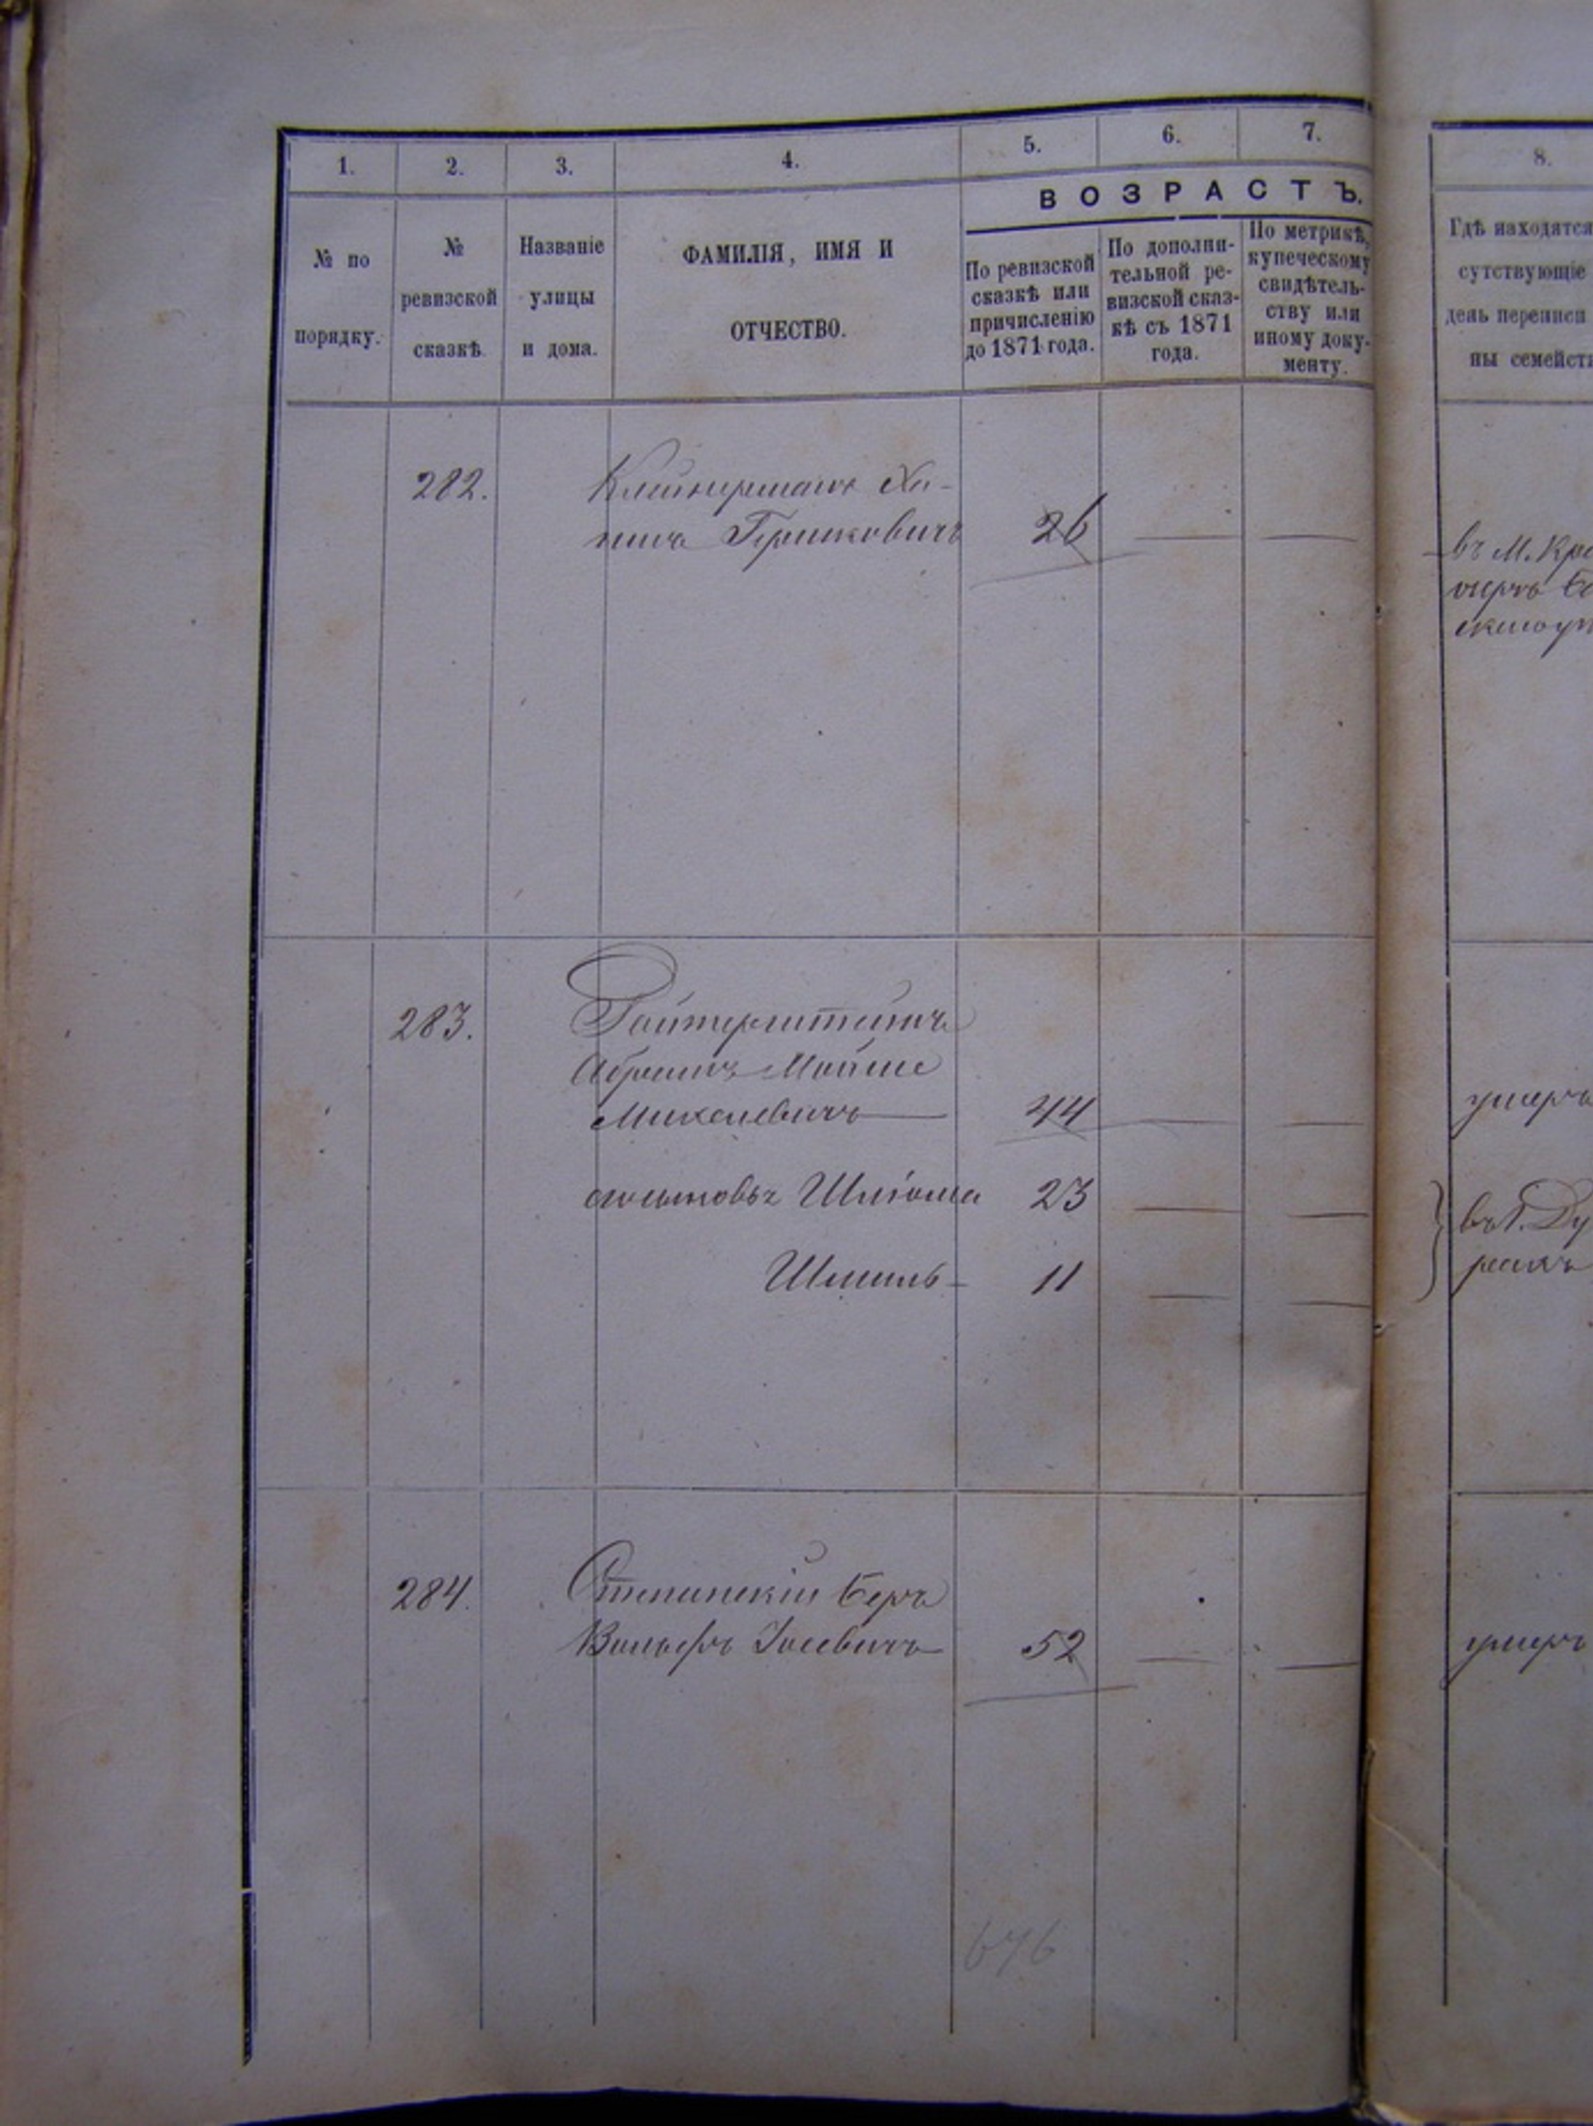 1. 2. 3. 4. 5. 6. 7. 8.
ВОЗРАСТЪ.
№ по порядку.
№ ревизской сказкѣ.
Названіе улицы и дома.
ФАМИЛІЯ, ИМЯ И ОТЧЕСТВО.
По ревизской сказкѣ или причисленію до 1871 года.
По дополнительной ревизской сказкѣ съ 1871 года.
По метрикѣ, купеческому свидѣтельству или иному документу.
Гдѣ находятся
сутствующіе
день переписи
ны семейств
282. Клейнерманъ Ха-
Гершковичъ 26 — —
въ М. Кра
283. Ройтерштейнъ
Абрамъ Мойше
Михелевичъ — 44 — —
умеръ
Шліома 23 — —
въ Г. Ду
Шмиль — 11 — —
284. Степанскій Беръ
Вольфъ Іосевичъ 52 — —
умеръ
676